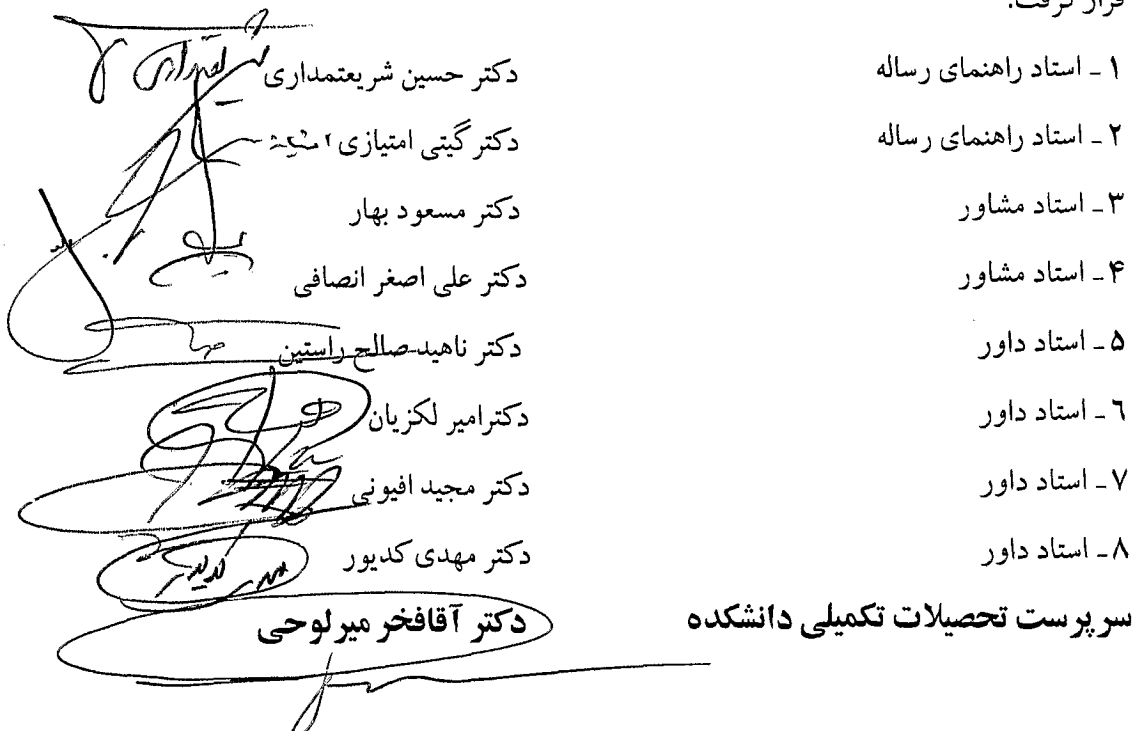 قرار گرفت.
۱ ـ استاد راهنمای رساله دکتر حسین شریعتمداری
۲ ـ استاد راهنمای رساله دکتر گیتی امتیازی
۳ ـ استاد مشاور دکتر مسعود بهار
۴ ـ استاد مشاور دکتر علی اصغر انصافی
۵ ـ استاد داور دکتر ناهید صالح راستین
٦ ـ استاد داور دکترامیر لکزیان
۷ ـ استاد داور دکتر مجید افیونی
۸ ـ استاد داور دکتر مهدی کدیور
سرپرست تحصیلات تکمیلی دانشکده دکتر آقافخر میرلوحی